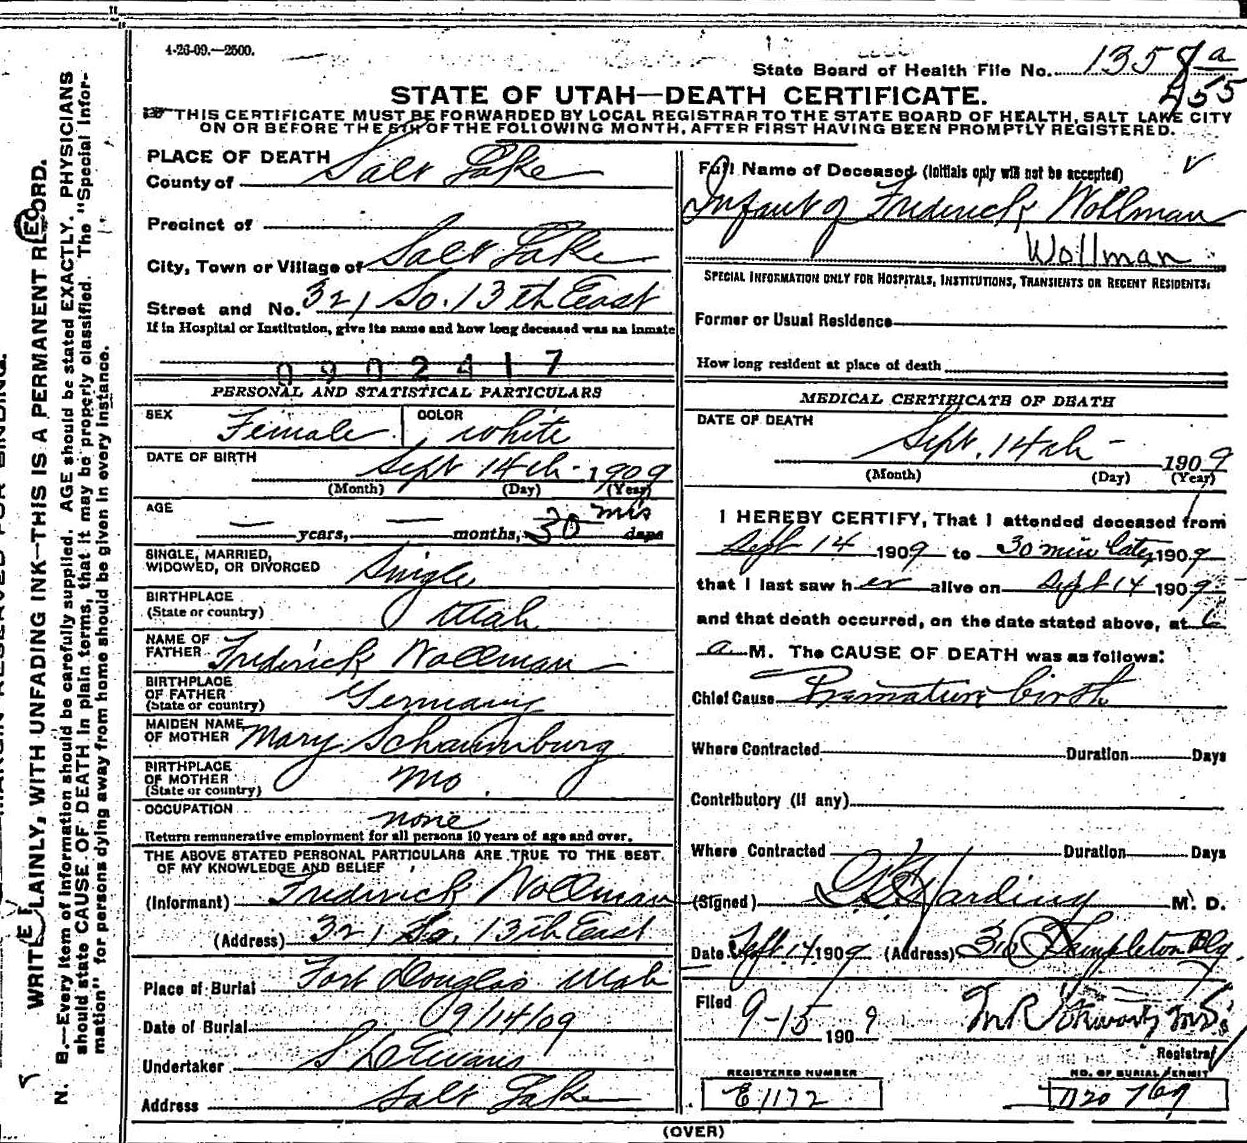 4-26-09.—2500.
State Board of Health File No. 1358 a
255
STATE OF UTAH—DEATH CERTIFICATE.
THIS CERTIFICATE MUST BE FORWARDED BY LOCAL REGISTRAR TO THE STATE BOARD OF HEALTH, SALT LAKE CITY
ON OR BEFORE THE 5TH OF THE FOLLOWING MONTH, AFTER FIRST HAVING BEEN PROMPTLY REGISTERED.
PLACE OF DEATH
County of Salt Lake
Precinct of
City, Town or Village of Salt Lake
Street and No. 321 So. 13th East
If in Hospital or Institution, give its name and how long deceased was an inmate
0902417
PERSONAL AND STATISTICAL PARTICULARS
SEX Female COLOR white
DATE OF BIRTH Sept 14th - 1909
(Month) (Day) (Year)
AGE — years, — months, 30 mis days
SINGLE, MARRIED,
WIDOWED, OR DIVORCED Single
BIRTHPLACE
(State or country) Utah
NAME OF
FATHER Frederick Wollman
BIRTHPLACE
OF FATHER
(State or country) Germany
MAIDEN NAME
OF MOTHER Mary Schaumburg
BIRTHPLACE
OF MOTHER
(State or country) Mo.
OCCUPATION none
Return remunerative employment for all persons 10 years of age and over.
THE ABOVE STATED PERSONAL PARTICULARS ARE TRUE TO THE BEST
OF MY KNOWLEDGE AND BELIEF
(Informant) Frederick Wollman
(Address) 321 So. 13th East
Place of Burial Fort Douglas Utah
Date of Burial 09/14/09
Undertaker S D Evans
Address Salt Lake
Full Name of Deceased (Initials only will not be accepted)
Infant of Frederick Wollman
Wollman
SPECIAL INFORMATION ONLY FOR HOSPITALS, INSTITUTIONS, TRANSIENTS OR RECENT RESIDENTS:
Former or Usual Residence
How long resident at place of death
MEDICAL CERTIFICATE OF DEATH
DATE OF DEATH
Sept. 14th - 1909
(Month) (Day) (Year)
I HEREBY CERTIFY, That I attended deceased from
Sept 14 1909 to 30 min later, 1909
that I last saw h er alive on Sept 14 1909
and that death occurred, on the date stated above, at 6
a M. The CAUSE OF DEATH was as follows:
Chief Cause Premature birth
Where Contracted Duration Days
Contributory (if any)
Where Contracted Duration Days
(Signed) Harding M. D.
Date Sept 14 1909 (Address) 310 Templeton Blg.
Filed 9-15 1909
Registrar
REGISTERED NUMBER
E1172
NO. OF BURIAL PERMIT
769
(OVER)
MARGIN RESERVED FOR BINDING.
WRITE PLAINLY, WITH UNFADING INK—THIS IS A PERMANENT RECORD.
N. B.—Every item of information should be carefully supplied. AGE should be stated EXACTLY. PHYSICIANS
should state CAUSE OF DEATH in plain terms, that it may be properly classified. The "Special Infor-
mation" for persons dying away from home should be given in every instance.